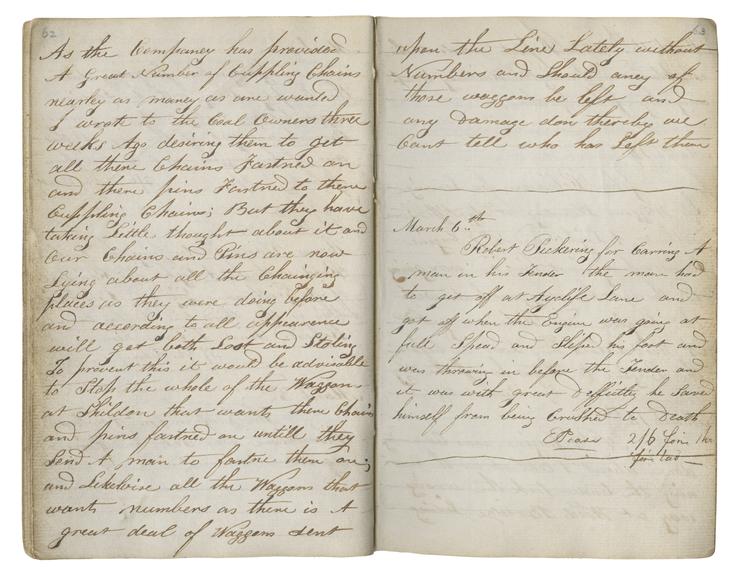 62
As the Companey has provided
A Great Number of Cuppling Chains
nearley as maney as are wanted
I wrote to the Coal Owners three
weeks Ago desiring them to get
all there Chains Fastned on
and there pins Fastned to there
Cuppling Chains; But they have
taking Little thought about it and
Our Chains and Pins are now
Lying about all the Chainging
places as they were doing before
and according to all appearance
will get both Lost and Stoling
To prevent this it would be advisable
to Stop the whole of the Waggons
at Shildon that wants there Chains
and pins fastned on untill they
Send A man to fastne them on;
and Likewise all the Waggons that
wants numbers as there is A
great deal of Waggons Sent
63
upon the Line Lately without
Numbers and Should aney of
those waggons be left and
any Damage don thereby we
Cant tell who has Left them
March 6th
Robert Pickering for Carring A
man in his Tender the man had
to get off at Ayclife Lane and
got off when the Engine was going at
full Spead and Sliped his foot and
was throwing in before the Tender and
it was with great Deffittey he Saved
himself from being Crushed to Death
2/6 for
for